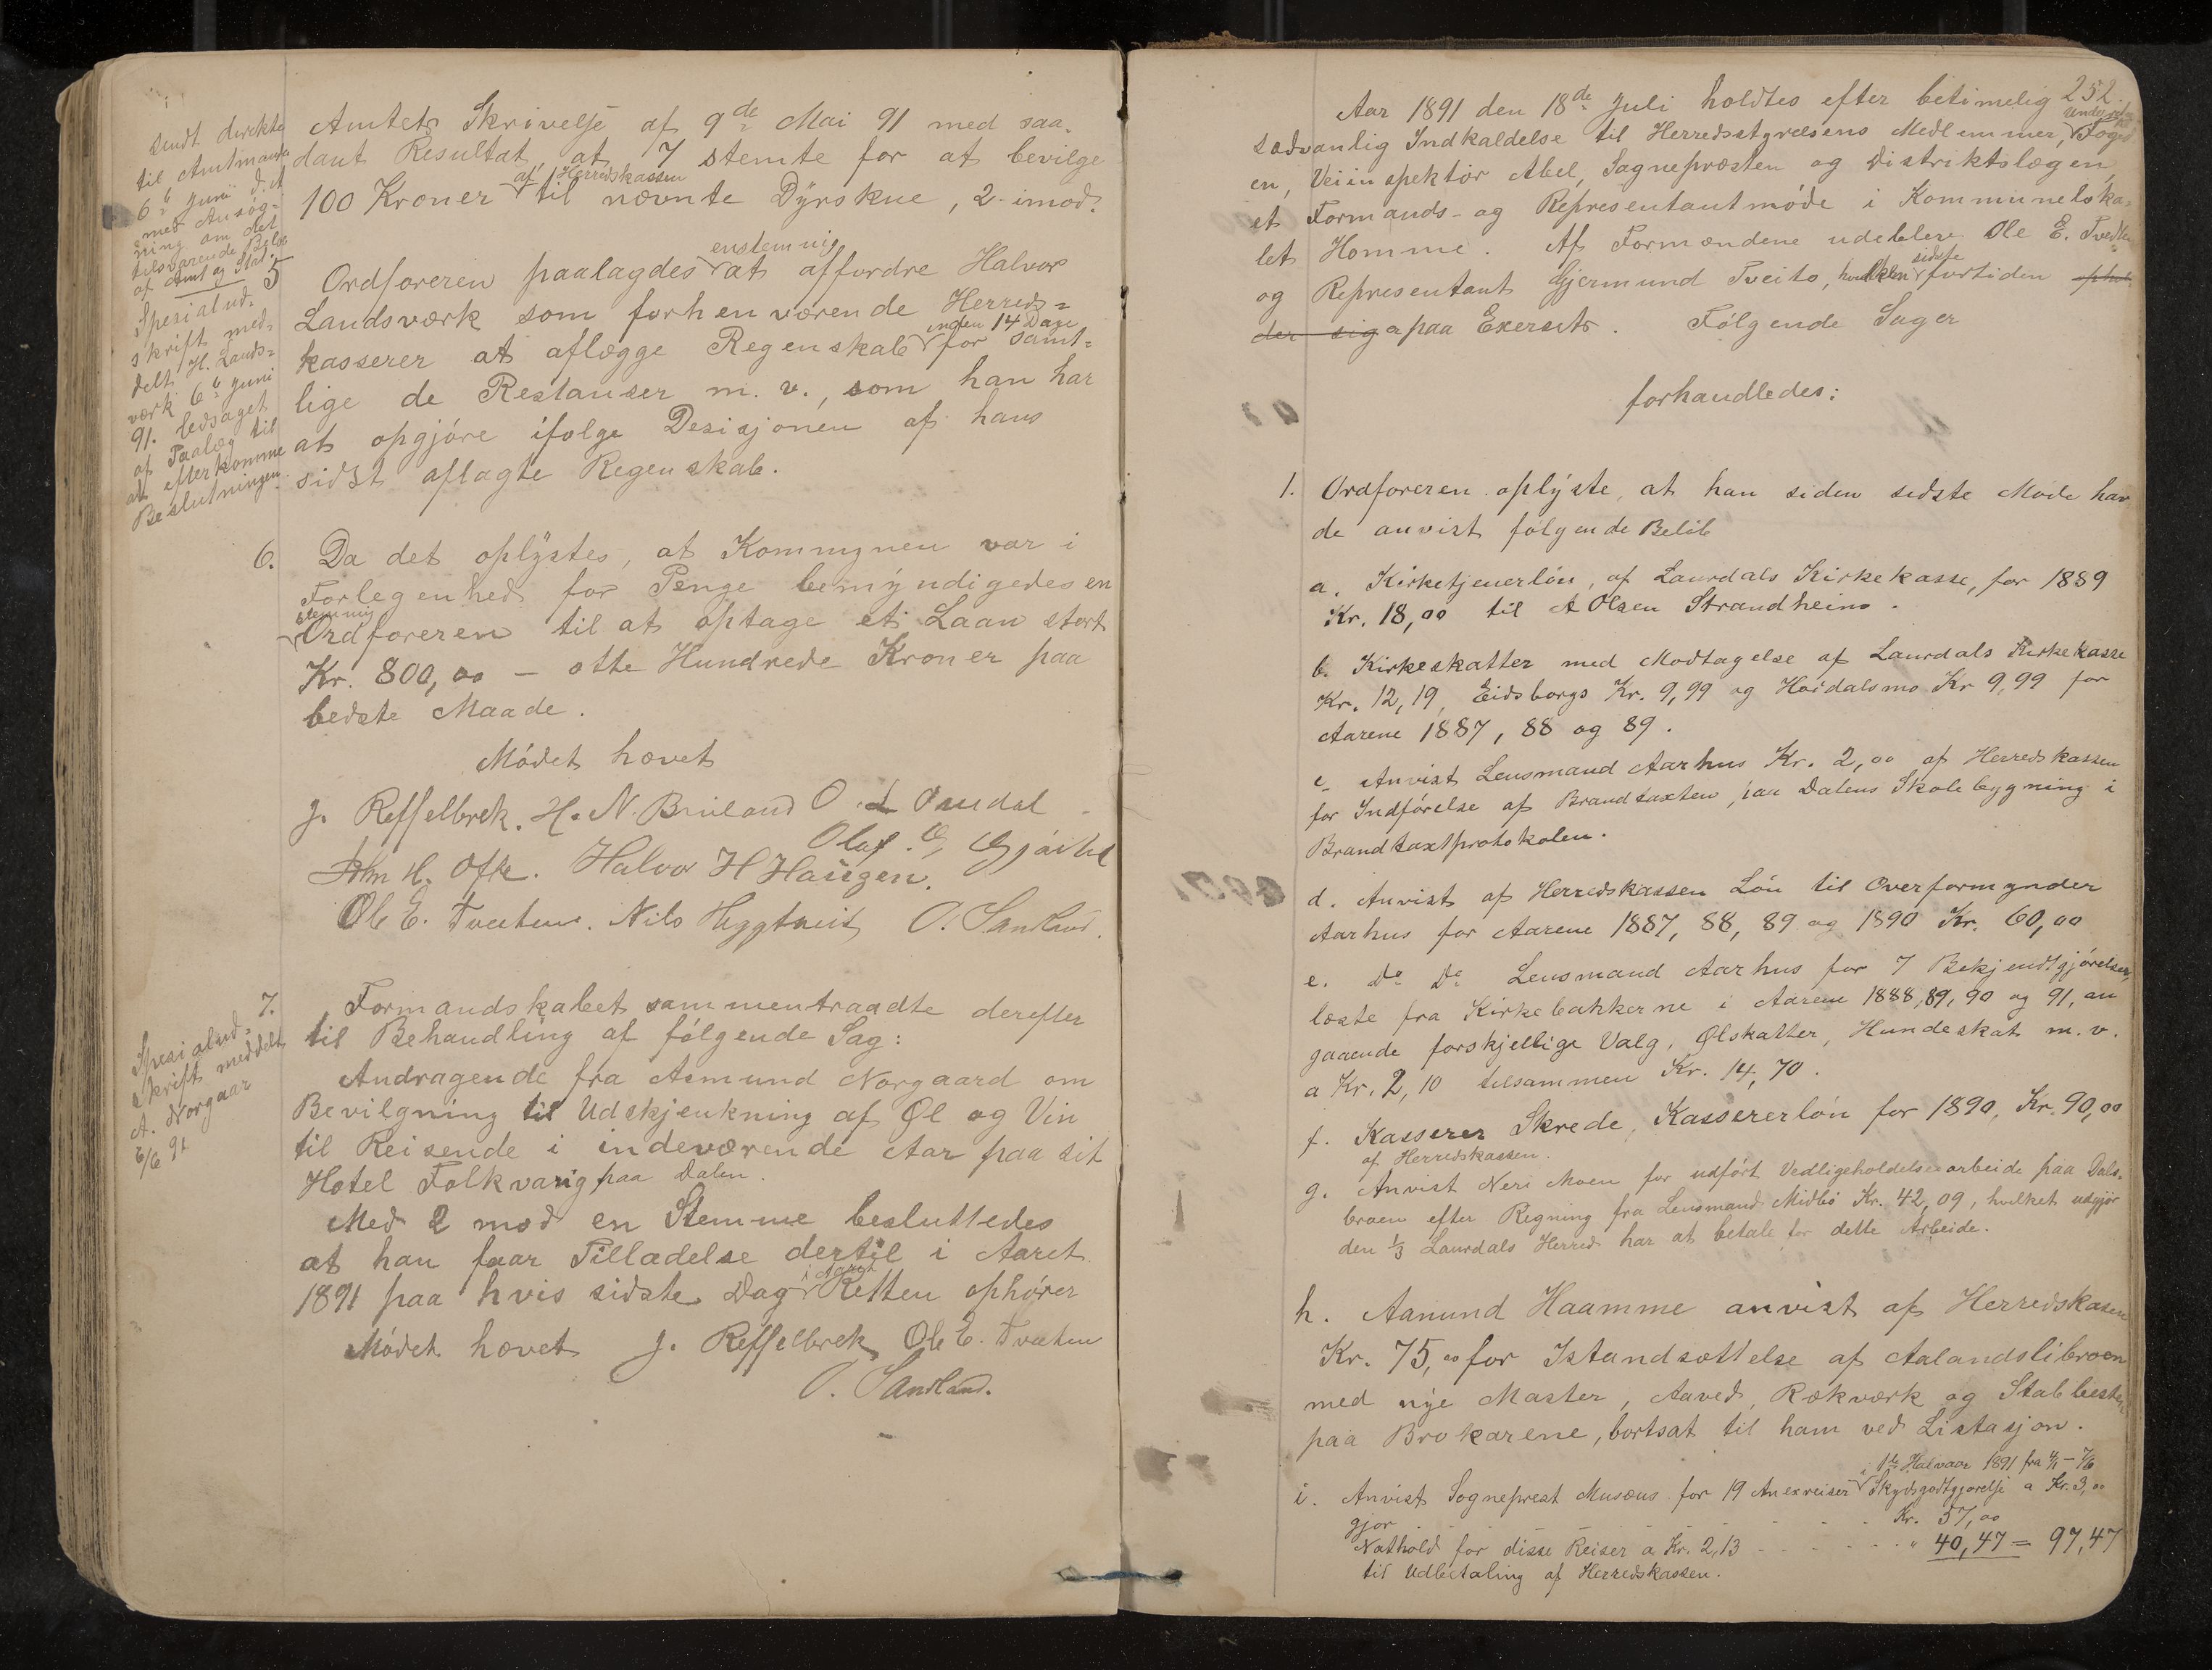 Amtets Skrivelse af 9de Mai 91 med saa-
dant Resultat, at 7 stemte for at bevilge
100 Kroner af Herredskassen til nævnte Dyrskue, 2 imod.
sendt direkte
til Amtmanden
6te Juni d.A
med Ansøg-
ning om det
tilsvarende Beløb
af Amt og Stat.
5
Ordføreren paalagdes enstemmig at affordre Halvor
Landsværk som forhenværende Herreds-
kasserer at aflægge Regenskab inden 14 Dage for samt-
lige de Restanser m. v., som han har
at opgjøre ifølge Desisjonen af hans
sidst aflagte Regenskab.
Spesialud-
skrift med-
delt H. Lands-
værk 6te Juni
91. ledsaget
af Paalæg til
at efterkomme
Beslutningen.
6. Da det oplystes, at Kommynen var i
Forlegenhed for Penge bemyndigedes en
stemmig
Ordføreren til at optage et Laan stort
Kr. 800,00 – otte Hundrede Kroner paa
bedste Maade.
Mødet hævet
J. Reffelbrek. H. N. Bruland O. L Omdal
Olaf. G. Gjøitil
John H. Ofte. Halvor H Haugen.
Ole E. Tveten. Nils Heggtveit O. Sandland.
7. Formandskabet sammentraadte derefter
til Behandling af følgende Sag:
Andragende fra Asmund Norgaard om
Bevilgning til Udskjenkning af Øl og Vin
til Reisende i indeværende Aar paa sit
Hotel Folkvang paa Dalen.
Med 2 mod en Stemme besluttedes
at han faar Tilladelse dertil i Aaret
1891 paa hvis sidste Dag i Aaret Retten ophører
Mødet hævet J. Reffelbrek Ole E. Tveten
O. Sandland.
Spesialud-
skrift meddelt
A. Norgaar
6/6 91
252.
Aar 1891 den 18de Juli holdtes efter betimelig
sædvanlig Indkaldelse til Herredsstyrelsens Medlemmer, Foged
en, Veiinspektør Abel, Sognepræsten og Distriktslægen,
et Formands- og Representantmøde i Kommuneloka-
let Homme. Af Formændene udeblev Ole E. Tveten
og Representant Gjermund Tveito, hvilken sidste fortiden ophol
der sig er paa Exersits. Følgende Sager
forhandledes:
1. Ordføreren oplyste, at han siden sidste Møde hav
de anvist følgende Beløb
a. Kirketjenerløn, af Laurdals Kirkekasse, for 1889
Kr. 18,00 til A Olsen Strandheim.
b. Kirkeskatter med Modtagelse af Laurdals Kirkekasse
Kr. 12,19, Eidsborgs Kr. 9,99 og Høidalsmo Kr 9,99 for
Aarene 1887, 88 og 89.
c. Anvist Lensmand Aarhus Kr. 2,00 af Herredskassen
for Indførelse af Brandtaxten paa Dalens Skolebygning i
Brandtaxtprotokolen.
d. Anvist af Herredskassen Løn til Overformynder
Aarhus for Aarene 1887, 88, 89 og 1890 Kr. 60,00
e. Do Do Lensmand Aarhus for 7 Bekjendtgjørelser,
læste fra Kirkebakkerne i Aarene 1888, 89, 90 og 91, an
gaaende forskjellige Valg, Ølskatter, Hundeskat m. v.
a Kr. 2,10 tilsammen Kr. 14,70.
f. Kasserer Skrede, Kassererløn for 1890, Kr. 90,00
af Herredskassen.
g. Anvist Neri Moen for udført Vedligeholdelsesarbeide paa Dals-
broen efter Regning fra Lensmand Midbø Kr. 42,09, hvilket udgjør
den 1/3 Laurdals Herred har at betale for dette Arbeide.
h. Aanund Haamme anvist af Herredskassen
Kr. 75,00 for Istandsættelse af Aalandslibroen
med nye Master, Aaved, Rækværk og Stabbesten
paa Brokarene, bortsat til ham ved Lisitasjon.
i. Anvist Sogneprest Musæus for 19 Anexreiser i 1ste Halvaar 1891 fra 1/1 – 7/6 Skydsgodtgjørelse a Kr. 3,00
gjør - - - - - Kr. 57,00
Nathold for disse Reiser a Kr. 2,13 - - - - - " 40,47 = 97,47
til Udbetaling af Herredskassen.